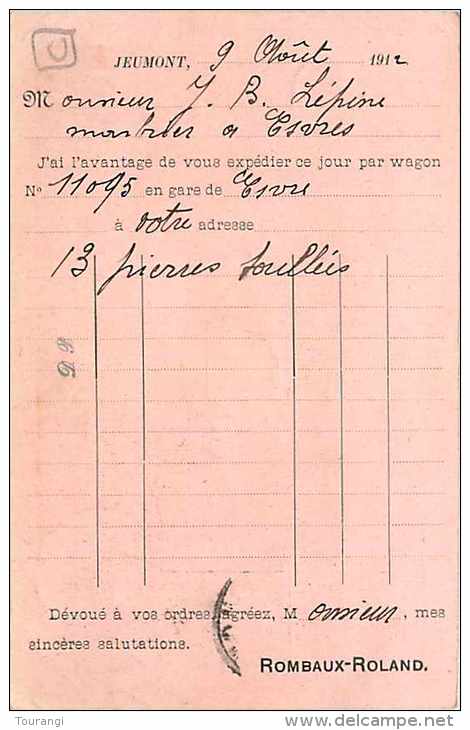 JEUMONT, 9 Août 1912
Monsieur J. B. Lépine
marbrier a Esvres
J'ai l'avantage de vous expédier ce jour par wagon
N° 11095 en gare de Esvre
à votre adresse
13 pierres
D P
Dévoué à vos ordres, agréez, Monsieur, mes
sincères salutations.
ROMBAUX-ROLAND.
Tourangi
delcampe.net